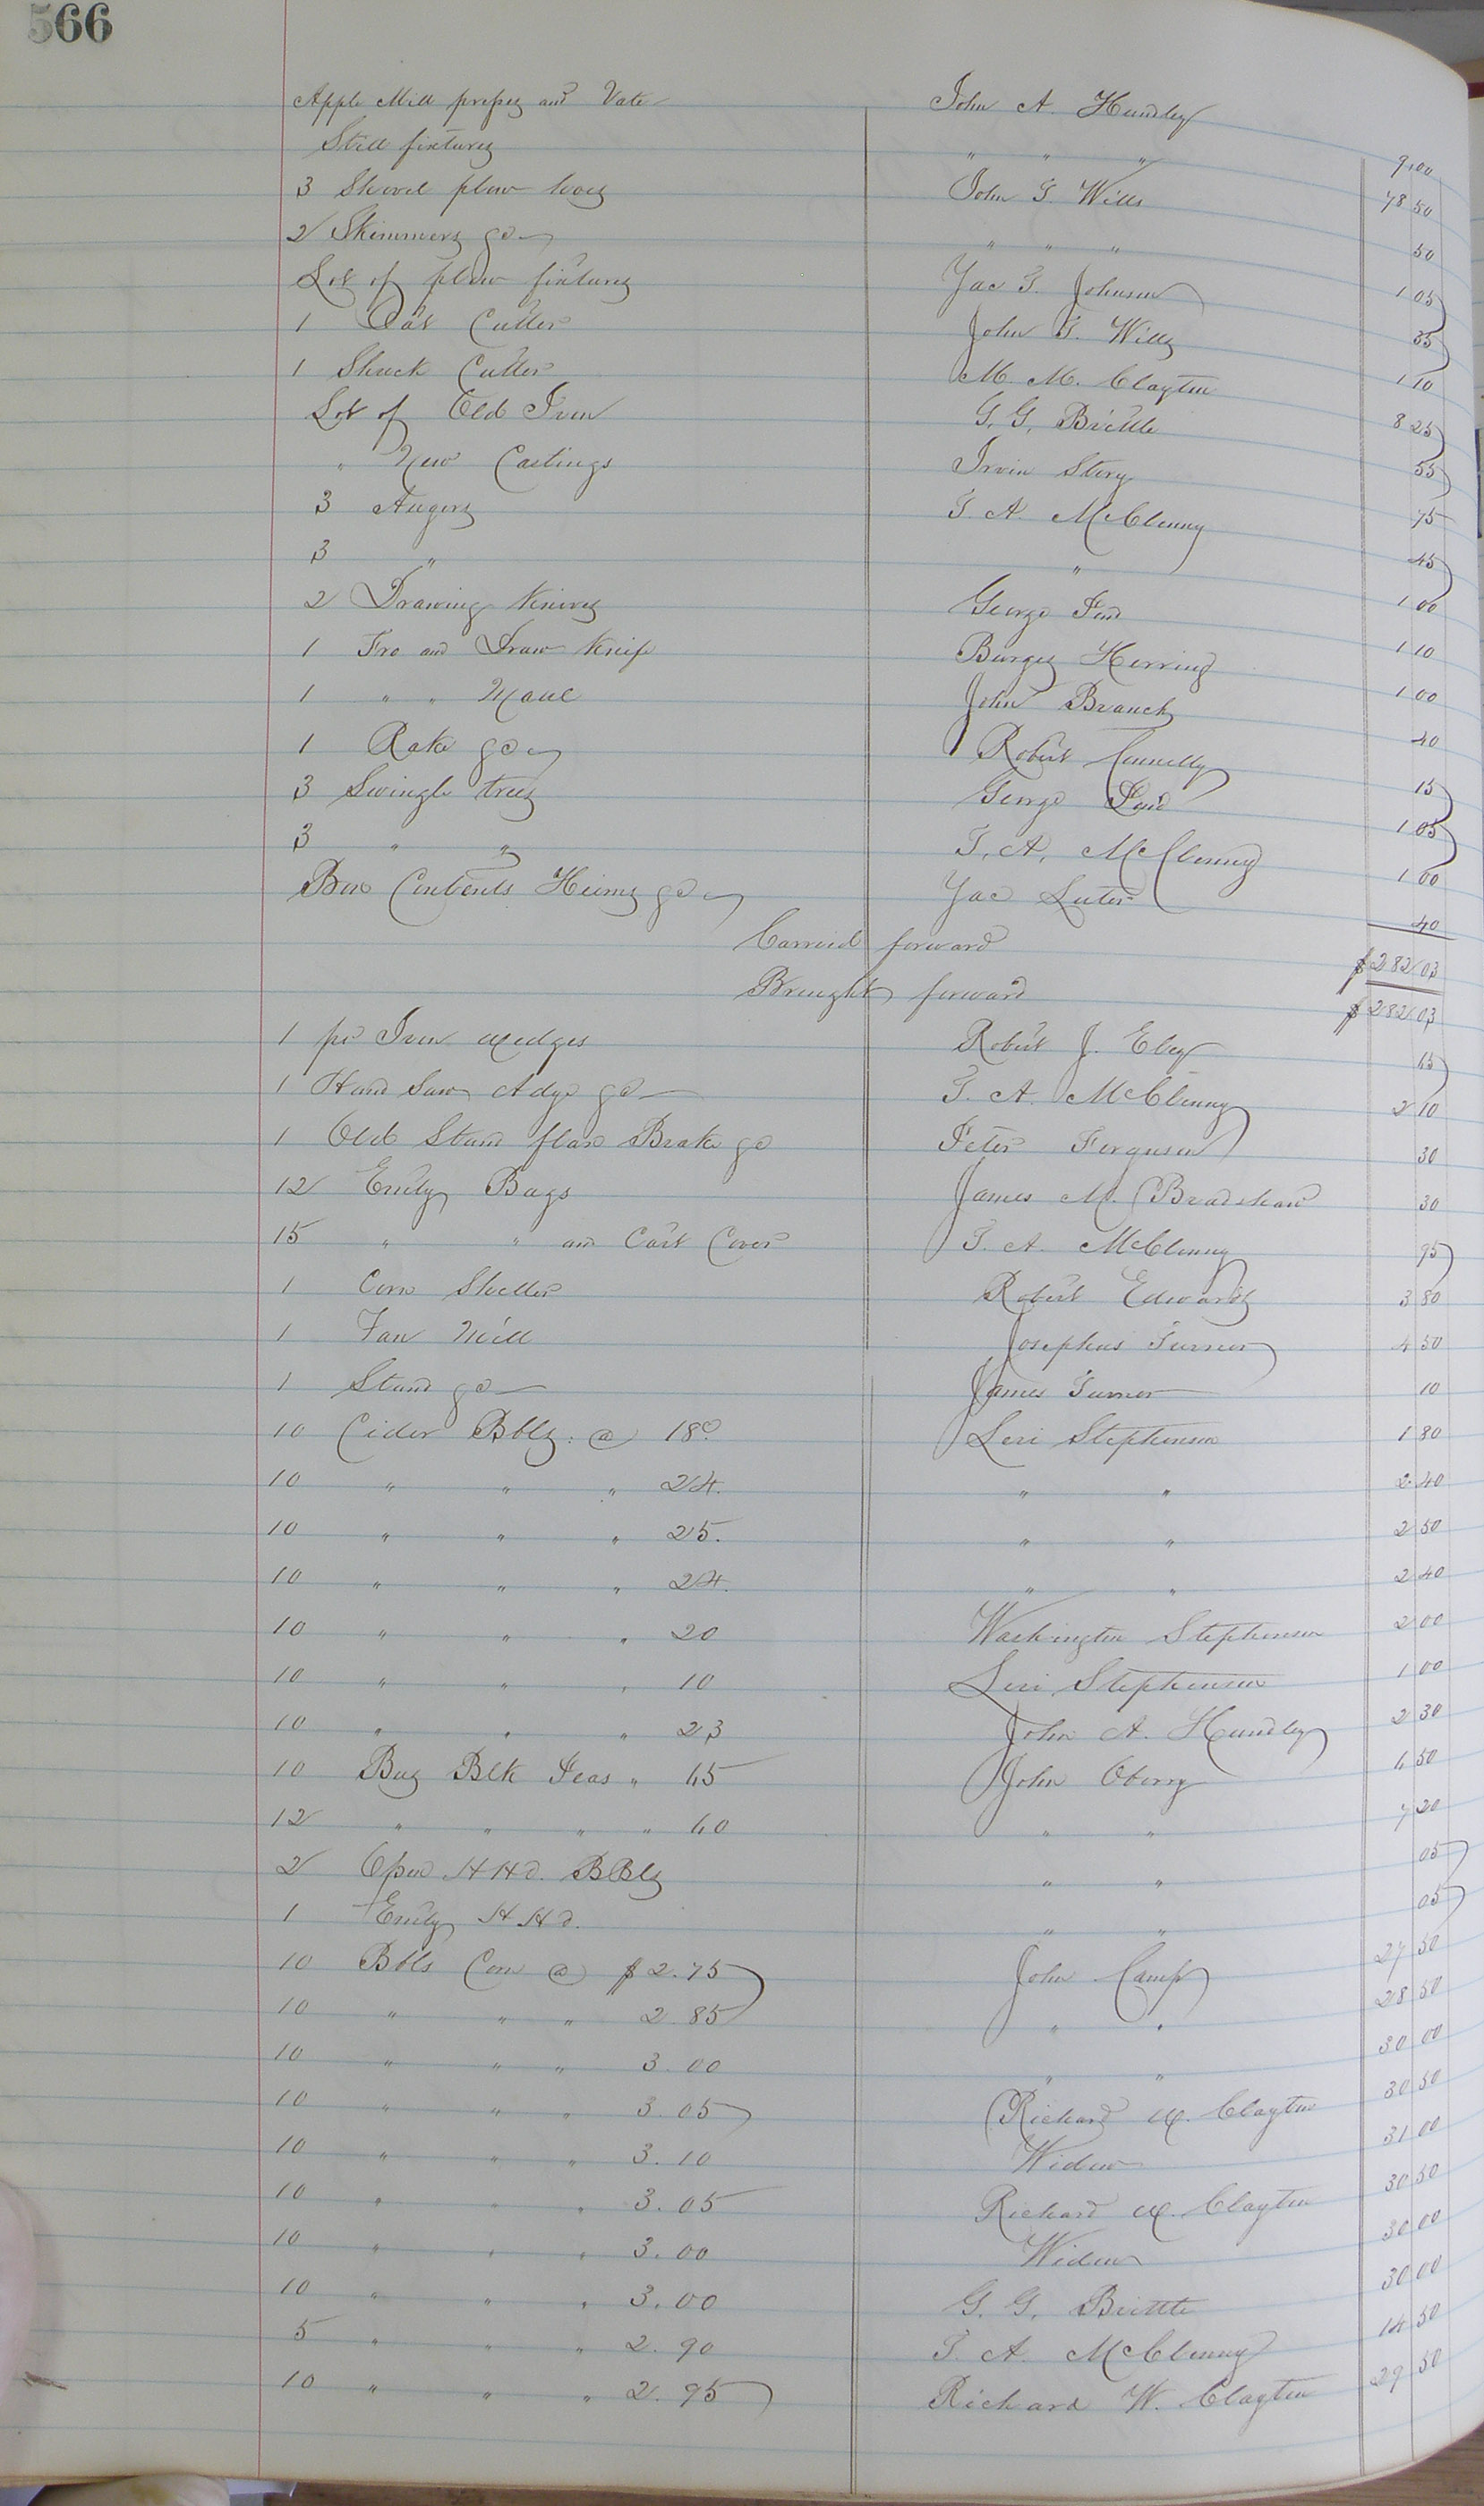 566
Apple Mill presses and Vats John A. Hundley 9.00
Still fixtures " " " 78 50
3 Shovel plow hoes John T. Wills 50
2 Skimmers &c " " " 1 05
Lot of plow fixtures Jac T. Johnson 35
1 Oat Cutter John T. Wills 1 10
1 Shuck Cutter M. M. Clayton 8 25
Lot of Old Iron G. G. Brittle 55
" New Castings Irvin Story 75
3 Augers T. A. McClenny 45
3 " " 1 00
2 Drawing Knives George 1 10
1 Fro and Draw Knife Burges Herring 1 00
1 " " Maul John Branch 40
1 Rake &c Robert Connelly 15
3 Swingle trees George 1 05
3 " " T. A. McClenny 1 00
Box Contents &c Jac Luter 40
Carried forward $282 03
Brought forward $282 03
1 pr Iron wedges Robert J. Eley 65
1 Hand Saw Adze &c T. A. McClenny 2 10
1 Old Stand flax Brake &c Peter Ferguson 30
12 Emty Bags James M. Bradshaw 30
15 " " and Cart Cover T. A. McClenny 95
1 Corn Sheller Robert Edwards 3 80
1 Fan Mill Josephus Turner 4 50
1 Stand &c James Turner 10
10 Cider Bbls: @ 18c. Levi Stephenson 1 80
10 " " " 24. " " 2 40
10 " " " 25. " " 2 50
10 " " " 24. " " 2 40
10 " " " 20 Washington Stephenson 2 00
10 " " " 10 Levi Stephenson 1 00
10 " " " 23 John A. Hundley 2 30
10 Bus Blk Peas " 65 John Oberry 6 50
12 " " " " 60 " " 7 20
2 Open HHd. BBls " " 05
1 Emty HHd. " " 05
10 Bbls Corn @ $2.75 John Camp 27 50
10 " " " 2.85 " " 28 50
10 " " " 3.00 " " 30 00
10 " " " 3.05 Richard W. Clayton 30 50
10 " " " 3.10 Widow 31 00
10 " " " 3.05 Richard W. Clayton 30 50
10 " " " 3.00 Widow 30 00
10 " " " 3.00 G. G. Brittle 30 00
5 " " " 2.90 T. A. McClenny 14 50
10 " " " 2.95 Richard W. Clayton 29 50